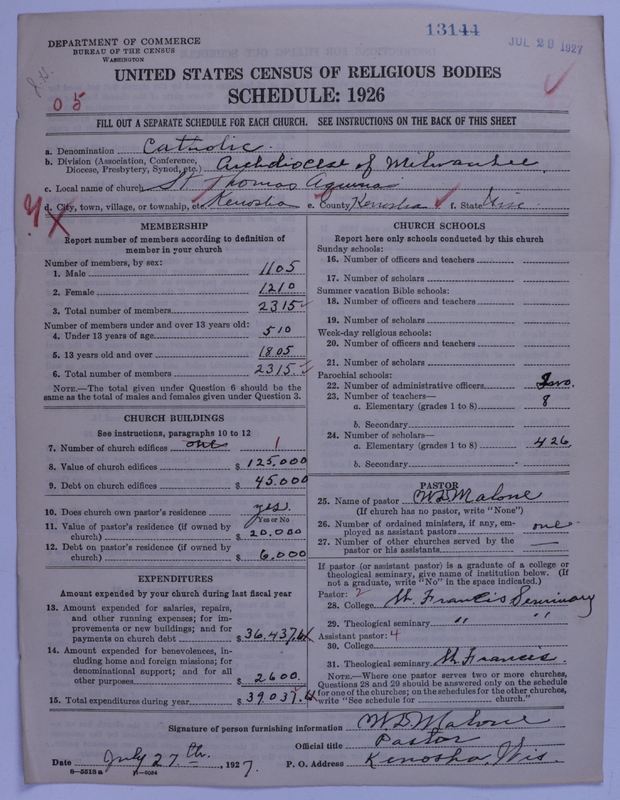 13144
JUL 29 1927
DEPARTMENT OF COMMERCE
BUREAU OF THE CENSUS
WASHINGTON
05
UNITED STATES CENSUS OF RELIGIOUS BODIES
SCHEDULE: 1926
FILL OUT A SEPARATE SCHEDULE FOR EACH CHURCH. SEE INSTRUCTIONS ON THE BACK OF THIS SHEET
a. Denomination Catholic.
b. Division (Association, Conference, Diocese, Presbytery, Synod, etc.) Archdiocese of Milwaukee
c. Local name of church St Thomas Aquinas
d. City, town, village, or township, etc. Kenosha e. County Kenosha f. State Wisc.
MEMBERSHIP
Report number of members according to definition of
member in your church
Number of members, by sex:
1. Male 1105
2. Female 1210
3. Total number of members 2315
Number of members under and over 13 years old:
4. Under 13 years of age 510
5. 13 years old and over 1805
6. Total number of members 2315
NOTE.—The total given under Question 6 should be the
same as the total of males and females given under Question 3.
CHURCH BUILDINGS
See instructions, paragraphs 10 to 12
7. Number of church edifices one 1
8. Value of church edifices $ 125,000
9. Debt on church edifices $ 45,000
10. Does church own pastor's residence yes.
Yes or No
11. Value of pastor's residence (if owned by
church) $ 20,000
12. Debt on pastor's residence (if owned by
church) $ 6,000
EXPENDITURES
Amount expended by your church during last fiscal year
13. Amount expended for salaries, repairs,
and other running expenses; for im-
provements or new buildings; and for
payments on church debt $ 36,437.
14. Amount expended for benevolences, in-
cluding home and foreign missions; for
denominational support; and for all
other purposes $ 2600.
15. Total expenditures during year $ 39037.
CHURCH SCHOOLS
Report here only schools conducted by this church
Sunday schools:
16. Number of officers and teachers
17. Number of scholars
Summer vacation Bible schools:
18. Number of officers and teachers
19. Number of scholars
Week-day religious schools:
20. Number of officers and teachers
21. Number of scholars
Parochial schools:
22. Number of administrative officers Two.
23. Number of teachers—
a. Elementary (grades 1 to 8) 8
b. Secondary
24. Number of scholars—
a. Elementary (grades 1 to 8) 426
b. Secondary
PASTOR
25. Name of pastor W D Malone
(If church has no pastor, write "None")
26. Number of ordained ministers, if any, em-
ployed as assistant pastors one
27. Number of other churches served by the
pastor or his assistants
If pastor (or assistant pastor) is a graduate of a college or
theological seminary, give name of institution below. (If
not a graduate, write "No" in the space indicated.)
Pastor: 2
28. College St. Francis Seminary
29. Theological seminary " "
Assistant pastor: 4
30. College
31. Theological seminary St. Francis.
NOTE.—Where one pastor serves two or more churches,
Questions 28 and 29 should be answered only on the schedule
for one of the churches; on the schedules for the other churches,
write "See schedule for church."
Signature of person furnishing information W. D. Malone
Official title Pastor
Date July 27th., 1927.
P. O. Address Kenosha, Wis.
8—5518a
11—9084